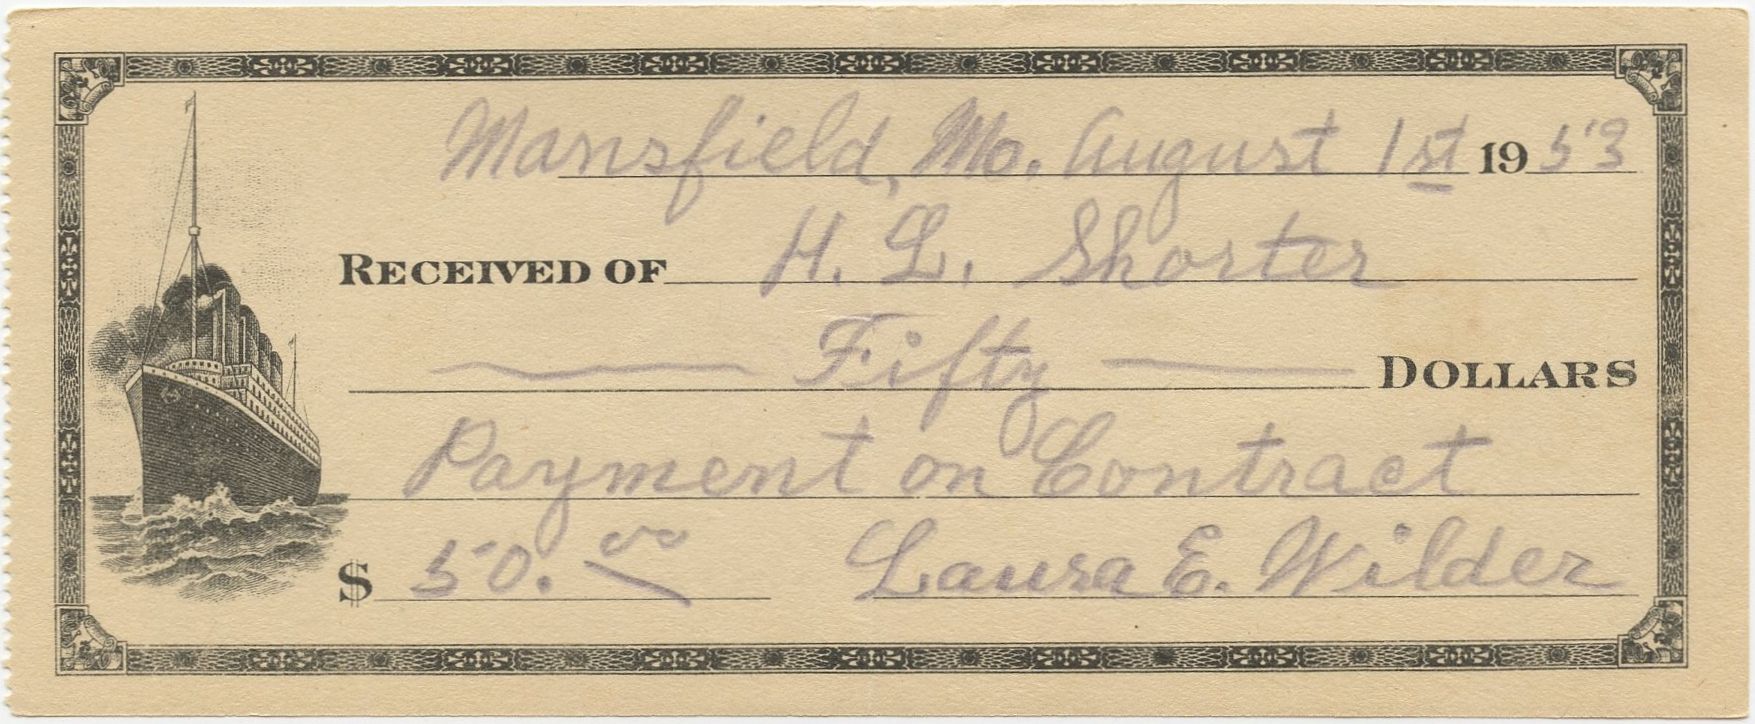 Mansfield, Mo. August 1st 1953
RECEIVED OF H. L. Shorter
Fifty DOLLARS
Payment on Contract
$ 50.00 Laura E. Wilder